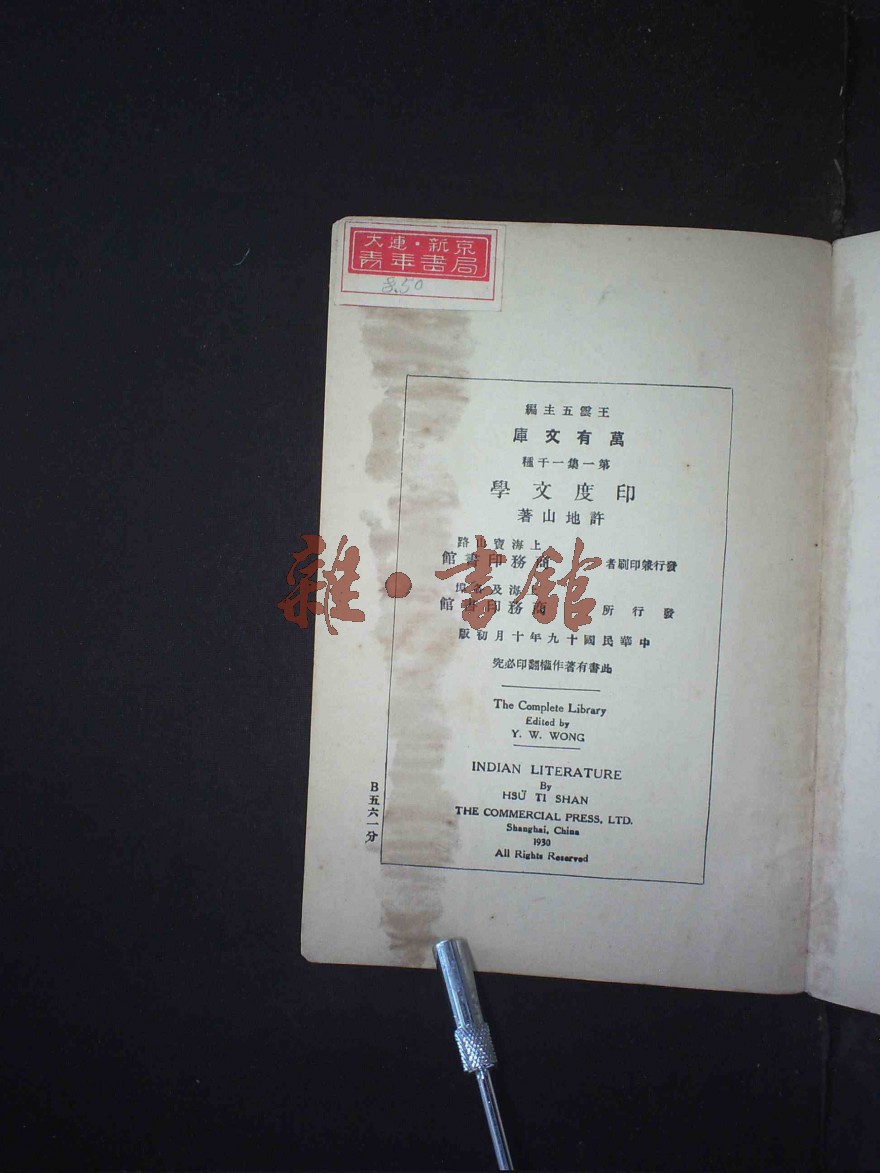 大連・新京
青年書局
王雲五主編
萬有文庫
第一集一千種
印度文學
許地山著
上海寶山路
發行兼印刷者 商務印書館
上海及各埠
發行所 商務印書館
中華民國十九年十月初版
此書有著作權翻印必究
The Complete Library
Edited by
Y. W. WONG
INDIAN LITERATURE
By
HSÜ TI SHAN
THE COMMERCIAL PRESS, LTD.
Shanghai, China
1930
All Rights Reserved
B五六一分
雜・書館